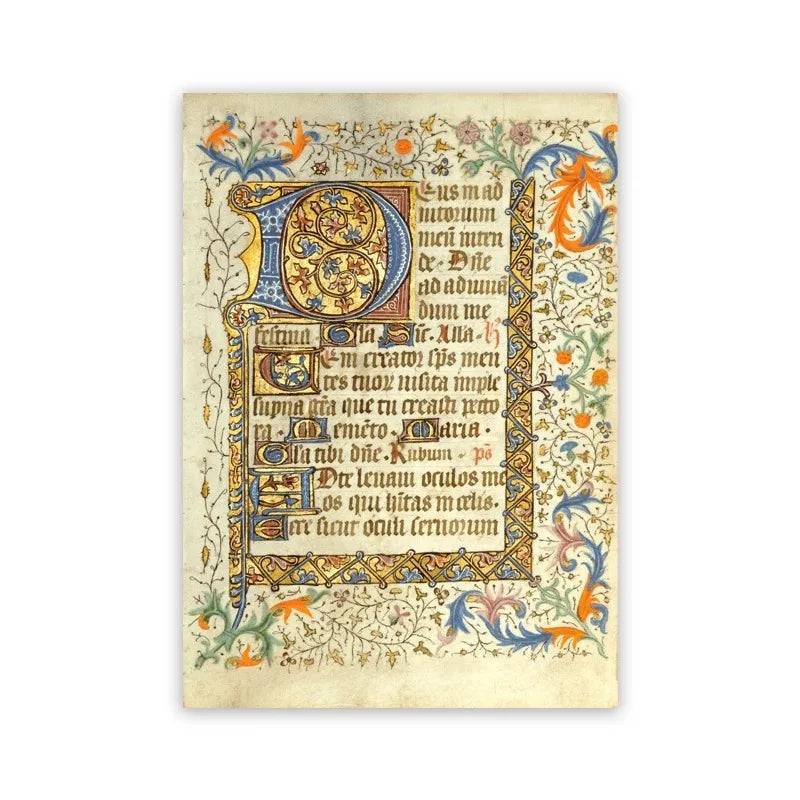 Deus in ad
iutorium
meū inten
de · Dn̄e
ad adiuuā
dum me
festina · Gl̄a · Sic̄ · Alla · H
Veni creator sp̄s men
tes tuoꝝ uisita imple
sup̄na gr̄a que tu creasti pecto
ra · Memēto · Maria ·
Gl̄a tibi dn̄e · Rubum · p̄s
Ad te leuaui oculos me
os qui hītas in celis ·
Ecce sicut oculi seruorum